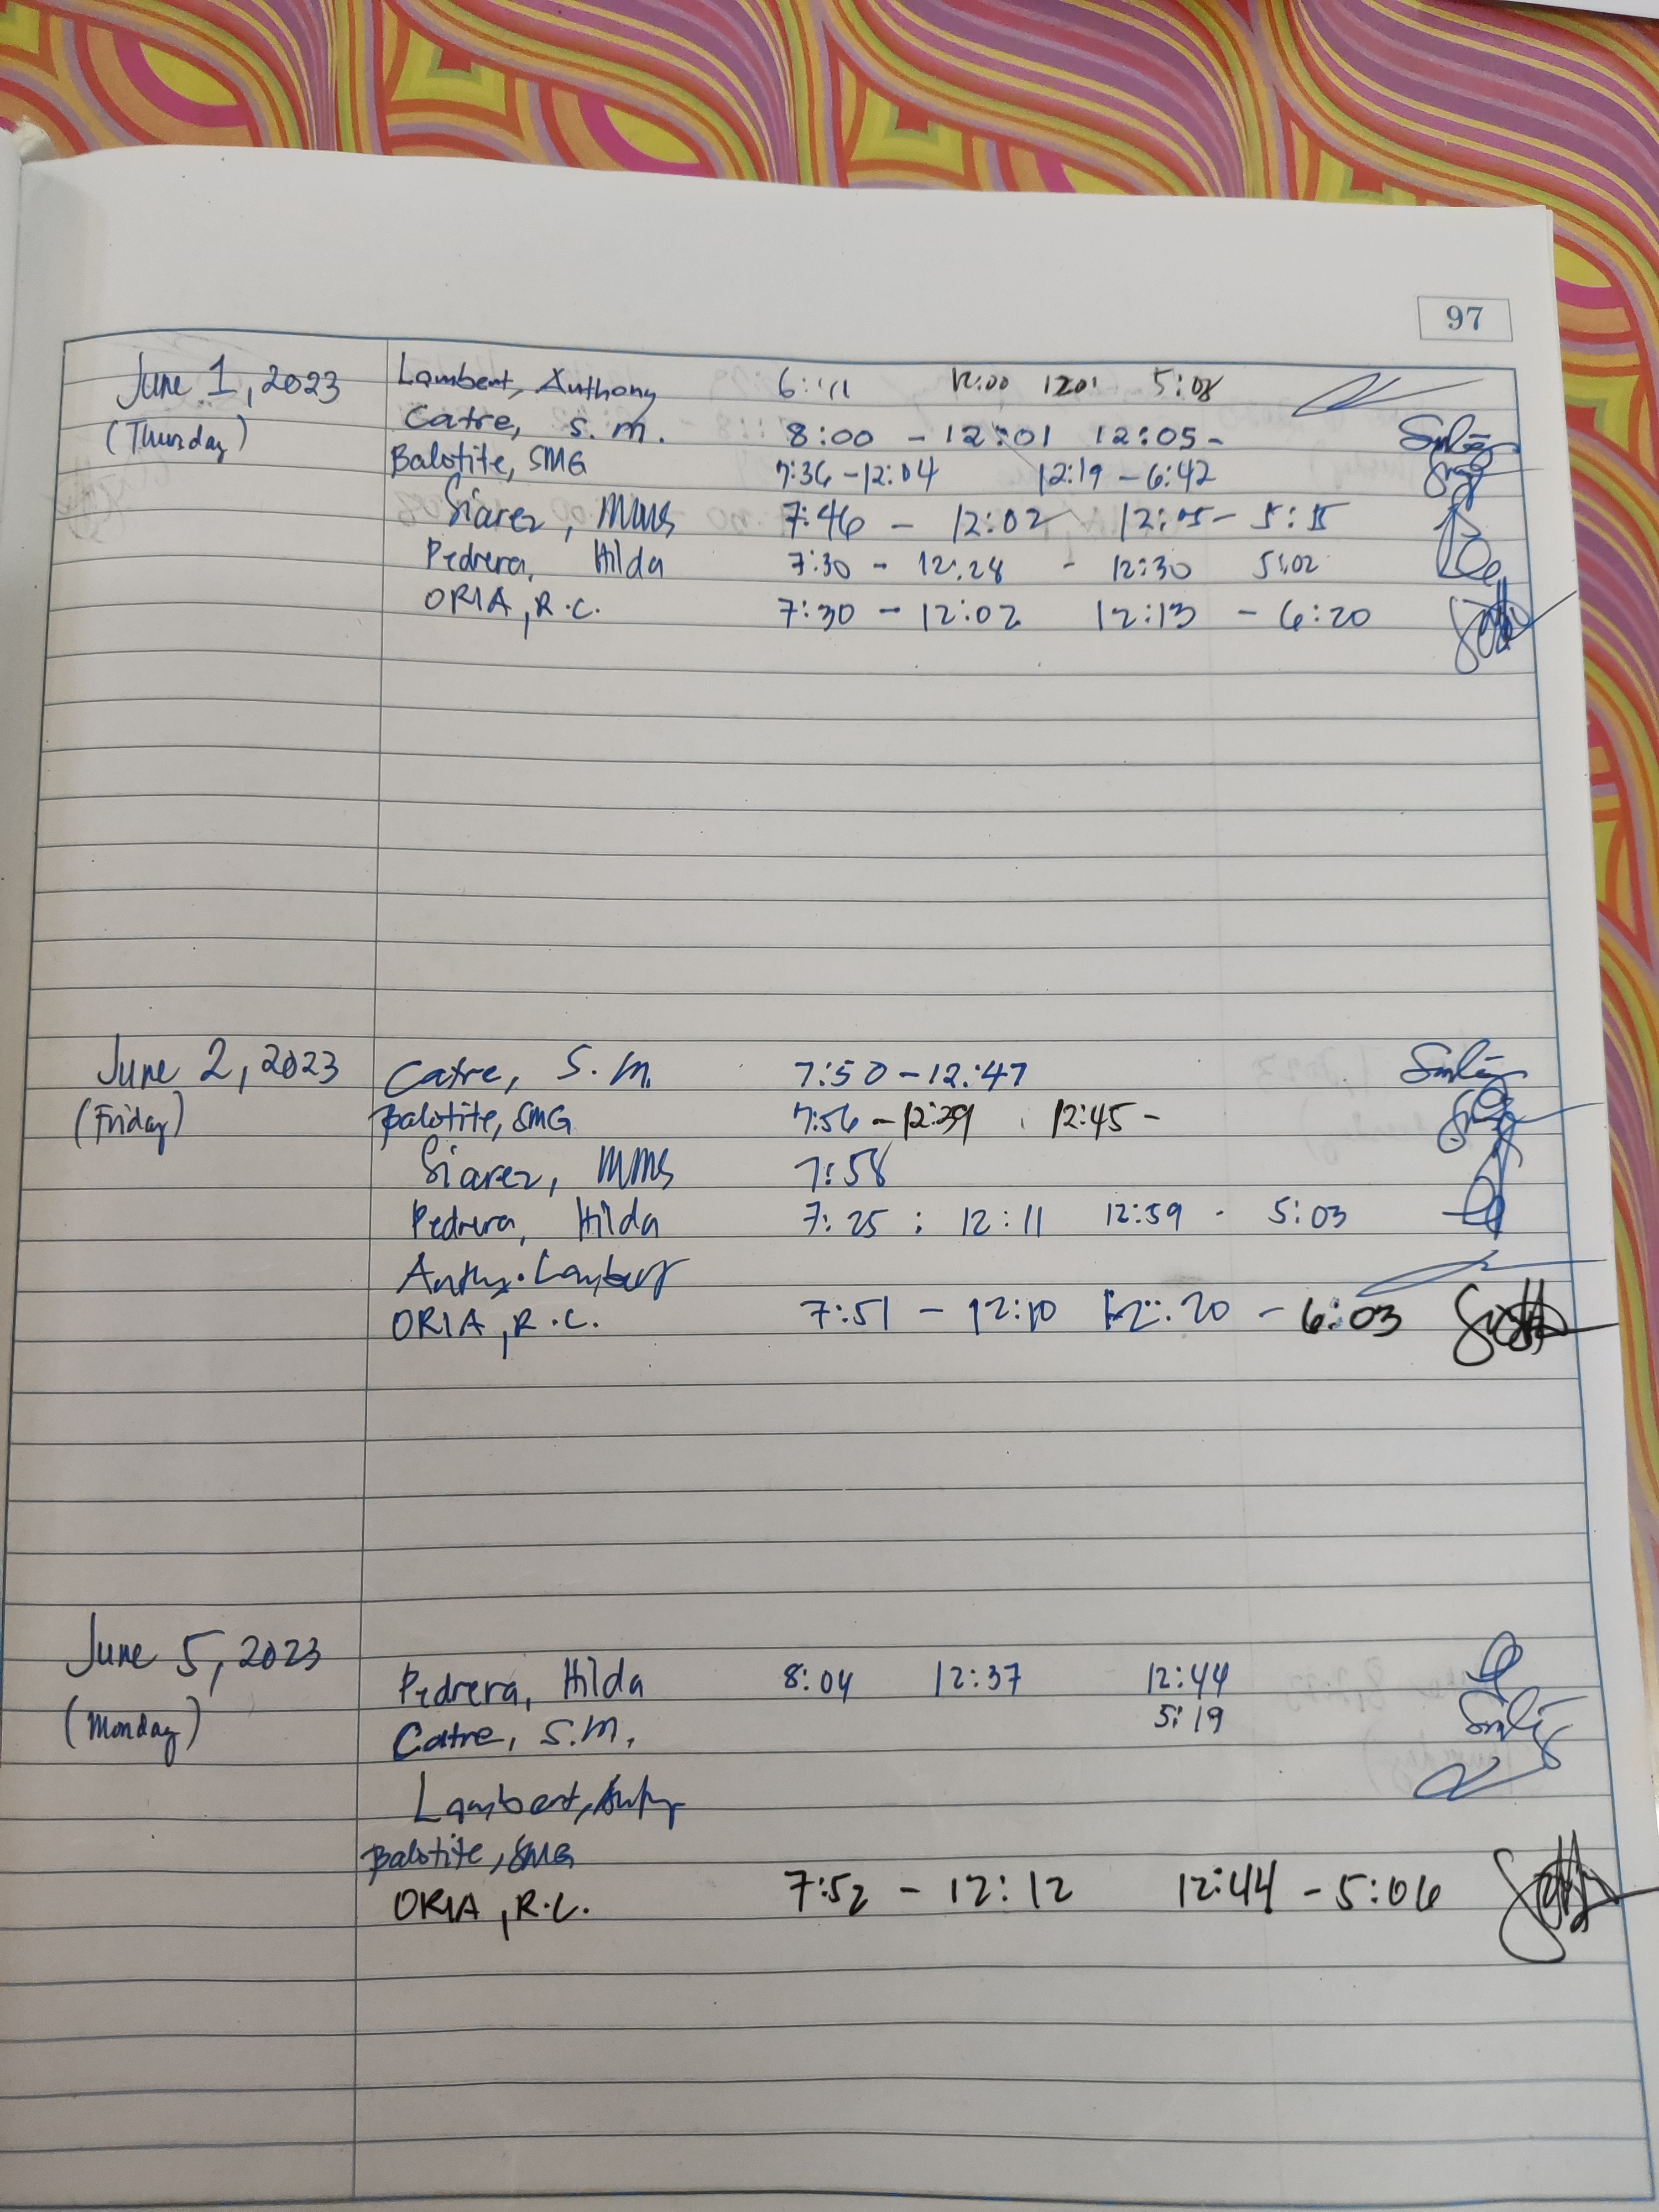 97
June 1, 2023 Lambert, Anthony 6:11 12:00 1201 5:08
(Thursday) Catre, S.M. 8:00 - 12:01 12:05 -
Balotite, SMG 7:36 - 12:04 12:19 - 6:42
Siarez, MMS 7:46 - 12:02 12:05 - 5:15
Pedrera, Hilda 7:30 - 12:28 - 12:30 5:02
ORIA, R.C. 7:30 - 12:02 12:13 - 6:20
June 2, 2023 Catre, S.M. 7:50 - 12:47
(Friday) Balotite, SMG 7:56 - 12:39 12:45 -
Siarez, MMS 7:58
Pedrera, Hilda 7:25 : 12:11 12:59 - 5:03
Lambert
ORIA, R.C. 7:51 - 12:10 12:20 - 6:03
June 5, 2023 Pedrera, Hilda 8:04 12:37 12:44
5:19
(Monday) Catre, S.M.
Lambert,
Balotite, SMG
ORIA, R.C. 7:52 - 12:12 12:44 - 5:06